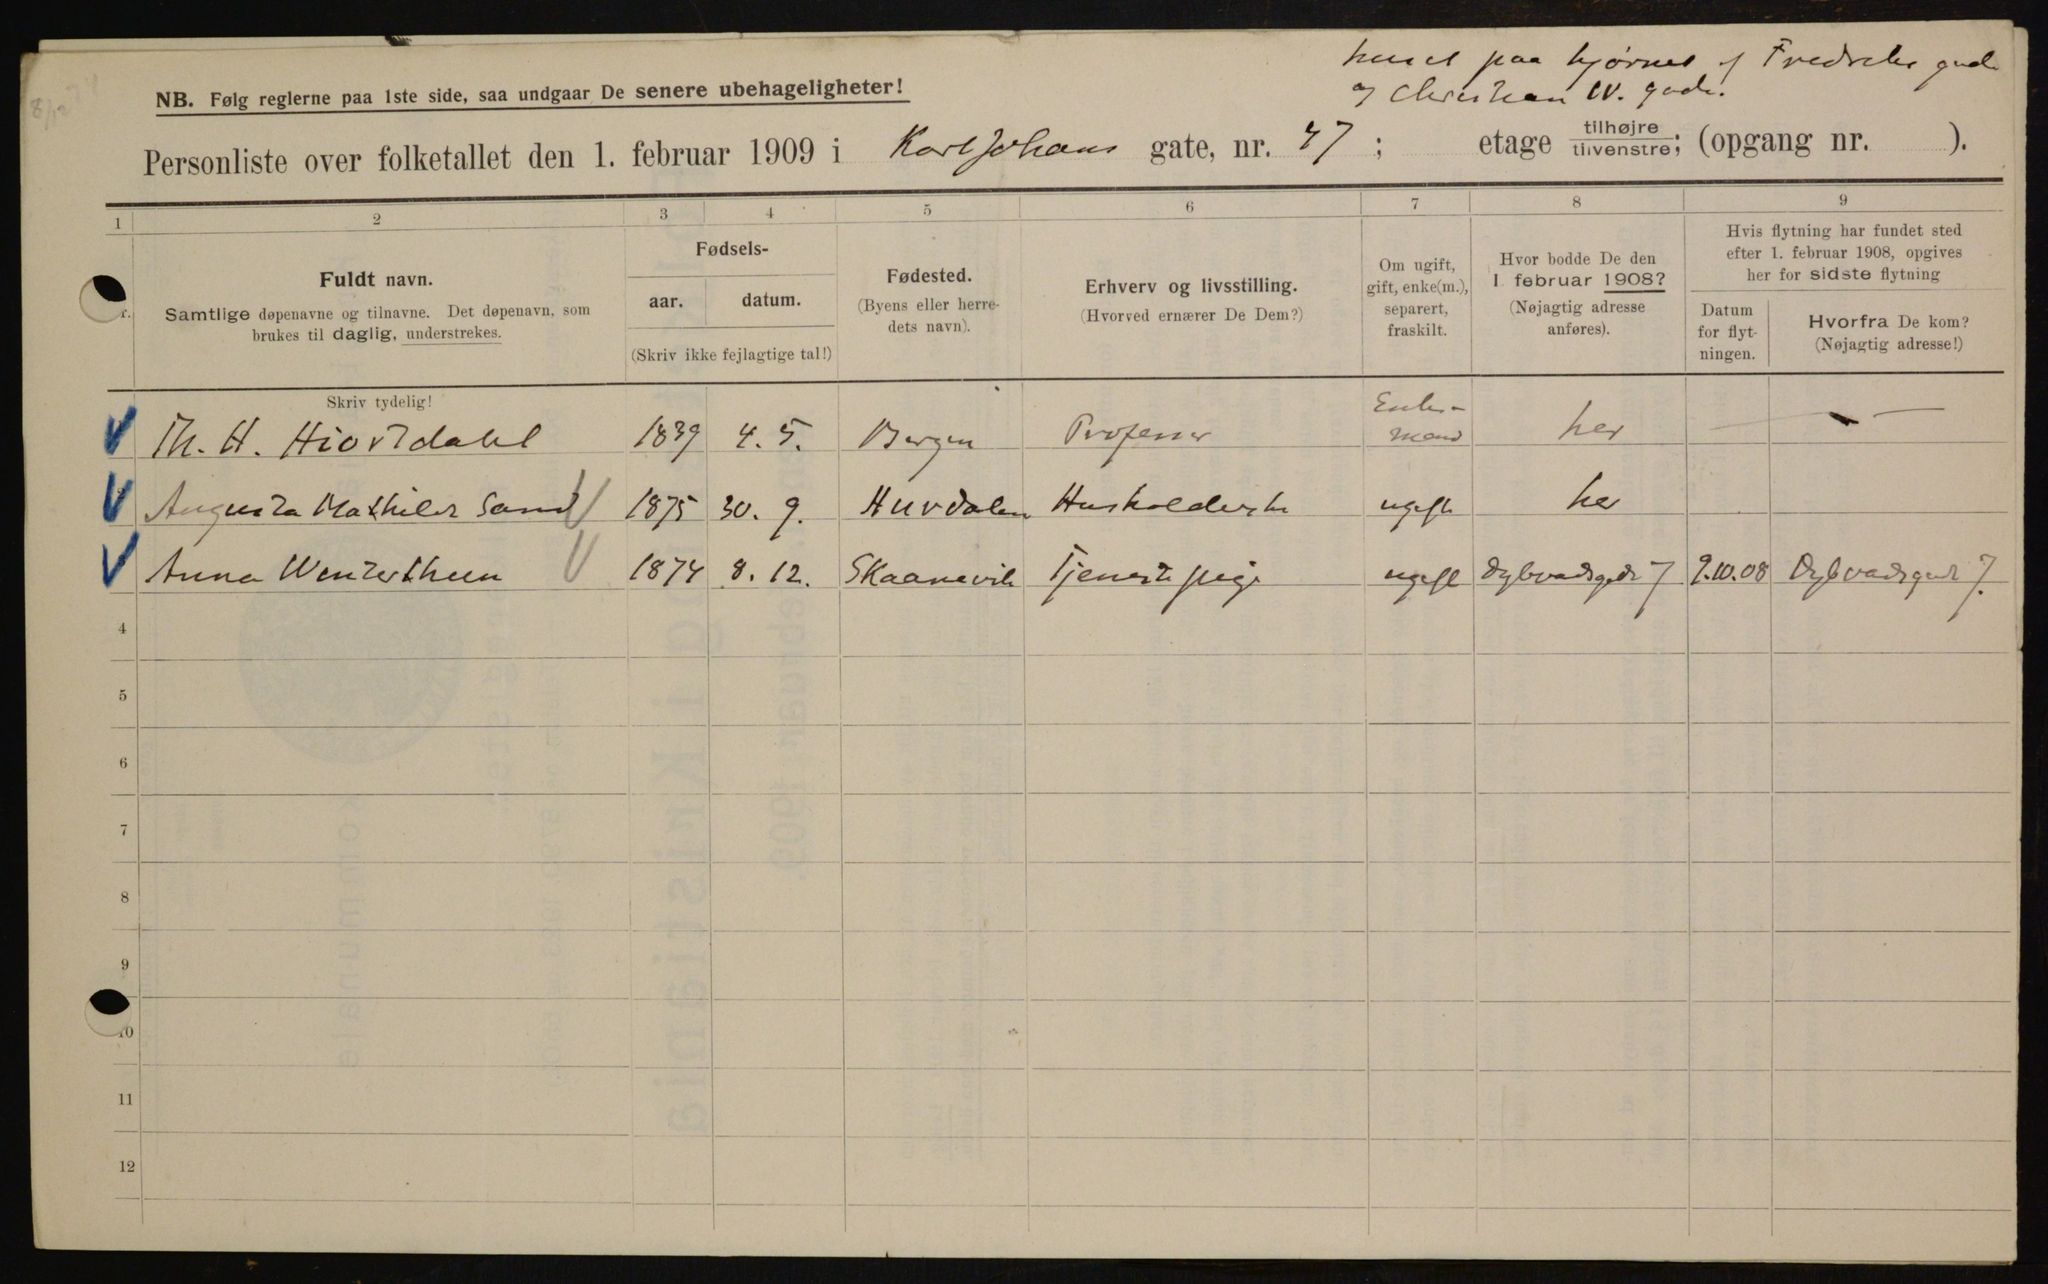 huset paa hjørnet af Fredriks gade
og Christian IV. gade.
NB. Følg reglerne paa 1ste side, saa undgaar De senere ubehageligheter!
Personliste over folketallet den 1. februar 1909 i Karl Johans gate, nr. 47; etage tilhøjre tilvenstre; (opgang nr. ).
1 2 3 4 5 6 7 8 9
Fuldt navn.
Samtlige døpenavne og tilnavne. Det døpenavn, som
brukes til daglig, understrekes.
Fødsels-
aar. datum.
(Skriv ikke fejlagtige tal!)
Fødested.
(Byens eller herre-
dets navn).
Erhverv og livsstilling.
(Hvorved ernærer De Dem?)
Om ugift,
gift, enke(m.),
separert,
fraskilt.
Hvor bodde De den
1 februar 1908?
(Nøjagtig adresse
anføres).
Hvis flytning har fundet sted
efter 1. februar 1908, opgives
her for sidste flytning
Datum
for flyt-
ningen.
Hvorfra De kom?
(Nøjagtig adresse!)
Skriv tydelig!
Th. H. Hiortdahl 1839 4. 5. Bergen Professor Enke-
mand her — —
Augusta Mathilde Sand 1875 30. 9. Hurdalen Husholderske ugift her
Anna Winterthun 1874 8. 12. Skaanevik Tjenestepige ugift Dybvadsgade 7 9.10.08 Dybvadsgade 7.
4
5
6
7
8
9
10
11
12